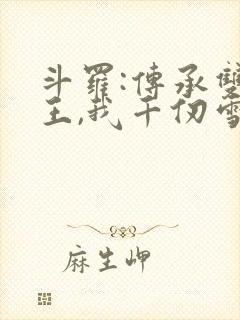 斗羅:傳承雙
王,我千仞雪
麻生岬